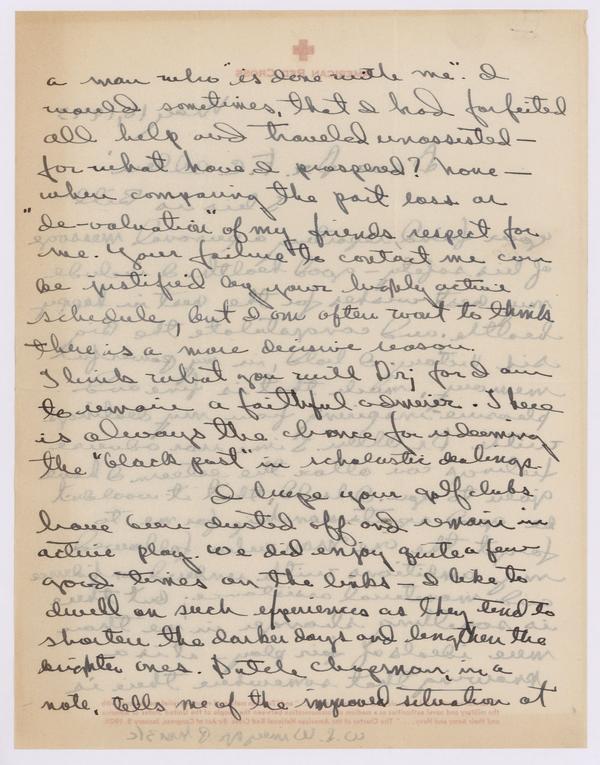 a man who "is done with me". I
would sometimes, that I had forfeited
all help and traveled unassisted—
for what have I prospered? None—
when comparing the past loss or
"de-valuation" of my friends respect for
me. Your failure to contact me can
be justified by your highly active
schedule, but I am often wont to think
there is a more decisive reason.
Think what you will Dr; for I am
to remain a faithful admirer. There
is always the chance for redeeming
the "black past" in scholastic dealings.
I hope your golf clubs
have been dusted off and remain in
active play. We did enjoy quite a few
good times on the links — I like to
dwell on such experiences as they tend to
shorten the darker days and lengthen the
brighter ones. Dutch Chapman, in a
note, tells me of the improved situation at